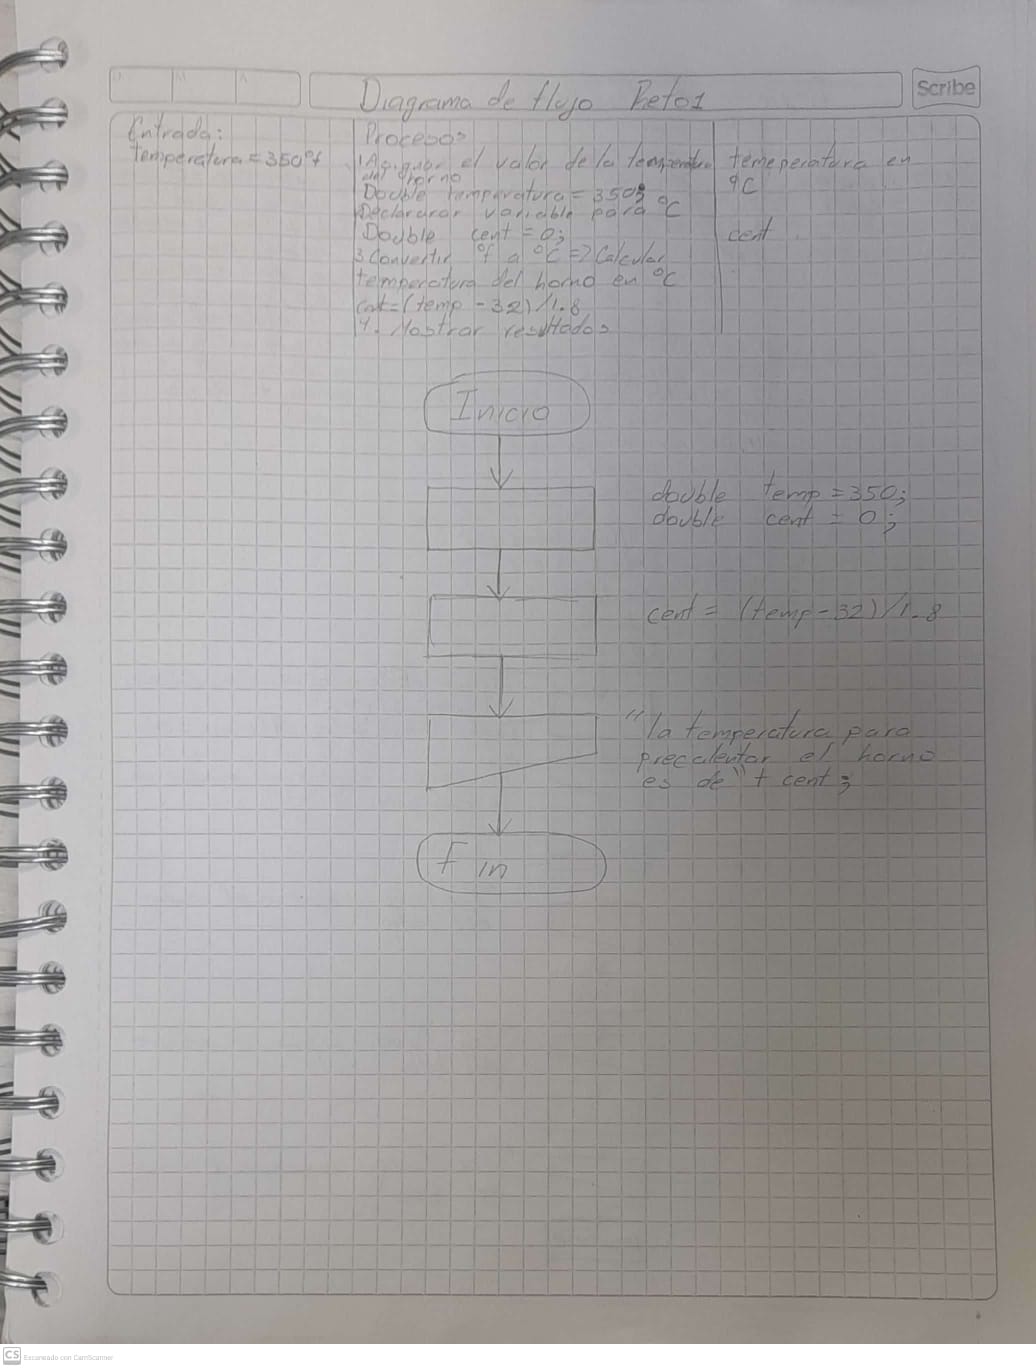 D M A
Diagrama de flujo Reto1
Scribe
Entrada:
temperatura = 350°f
Procesos
1 Asignar el valor de la temperatura
del horno
Double temperatura = 350;
Declararar variable para °C
Double cent = 0;
3 Convertir °f a °C =2 Calcular
temperatura del horno en °C
cent=(temp - 32)/1.8
4. Mostrar resultados
temeperatura en
°C
cent
Inicio
double temp = 350;
double cent = 0;
cent = (temp - 32)/1.8
"la temperatura para
precalentar el horno
es de" + cent;
Fin
CS Escaneado con CamScanner